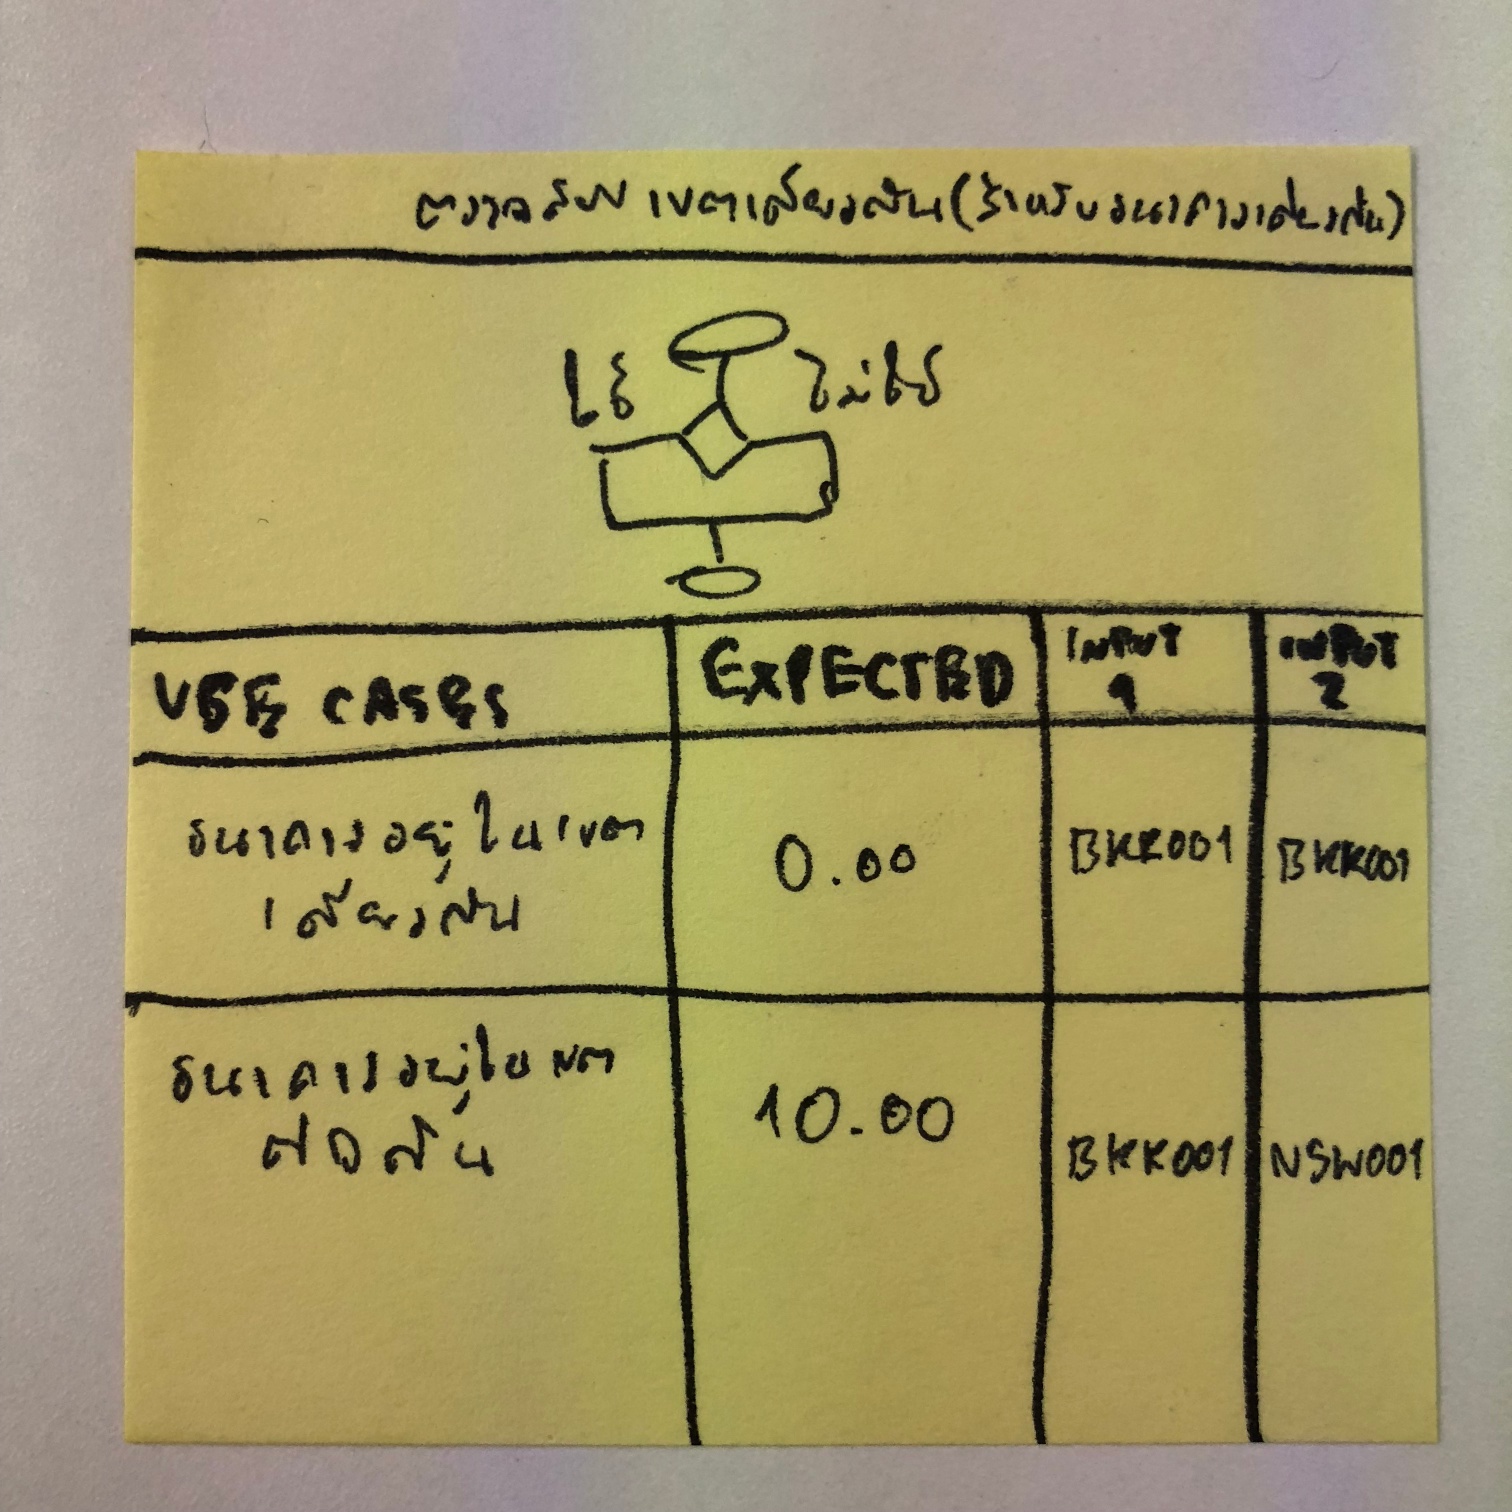 ตรวจสอบเขตเดียวกัน (สำหรับธนาคารเดียวกัน)
ใช่
ไม่ใช่
USE CASES
EXPECTED
INPUT
1
INPUT
2
ธนาคารอยู่ในเขต
เดียวกัน
0.00
BKK001
BKK001
ธนาคารอยู่ในเขต
10.00
BKK001
NSW001